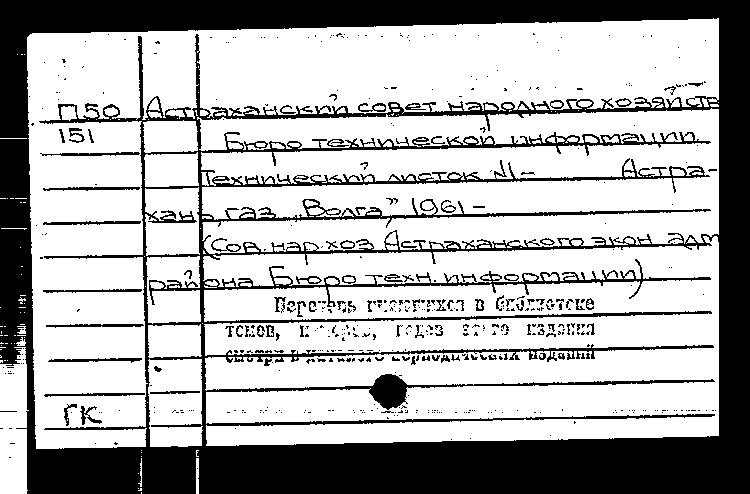 П50 Астраханский совет народного хозяйств
151 Бюро технической информации
Технический листок №1- Астра-
хань, газ. „Волга”, 1961 -
(Сов. нар. хоз. Астраханского экон. адм
района Бюро техн. информации).
Перечень имеющихся в библиотеке
томов, номеров, годов этого издания
смотри в каталоге периодических изданий
ГК